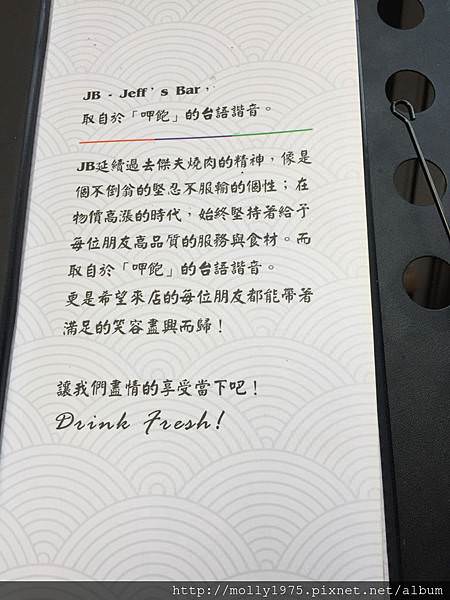 JB - Jeff's Bar，
取自於「呷飽」的台語諧音。
JB延續過去傑夫燒肉的精神，像是
個不倒翁的堅忍不服輸的個性；在
物價高漲的時代，始終堅持著給予
每位朋友高品質的服務與食材。而
取自於「呷飽」的台語諧音。
更是希望來店的每位朋友都能帶著
滿足的笑容盡興而歸！
讓我們盡情的享受當下吧！
Drink Fresh!
http://molly1975.pixnet.net/album